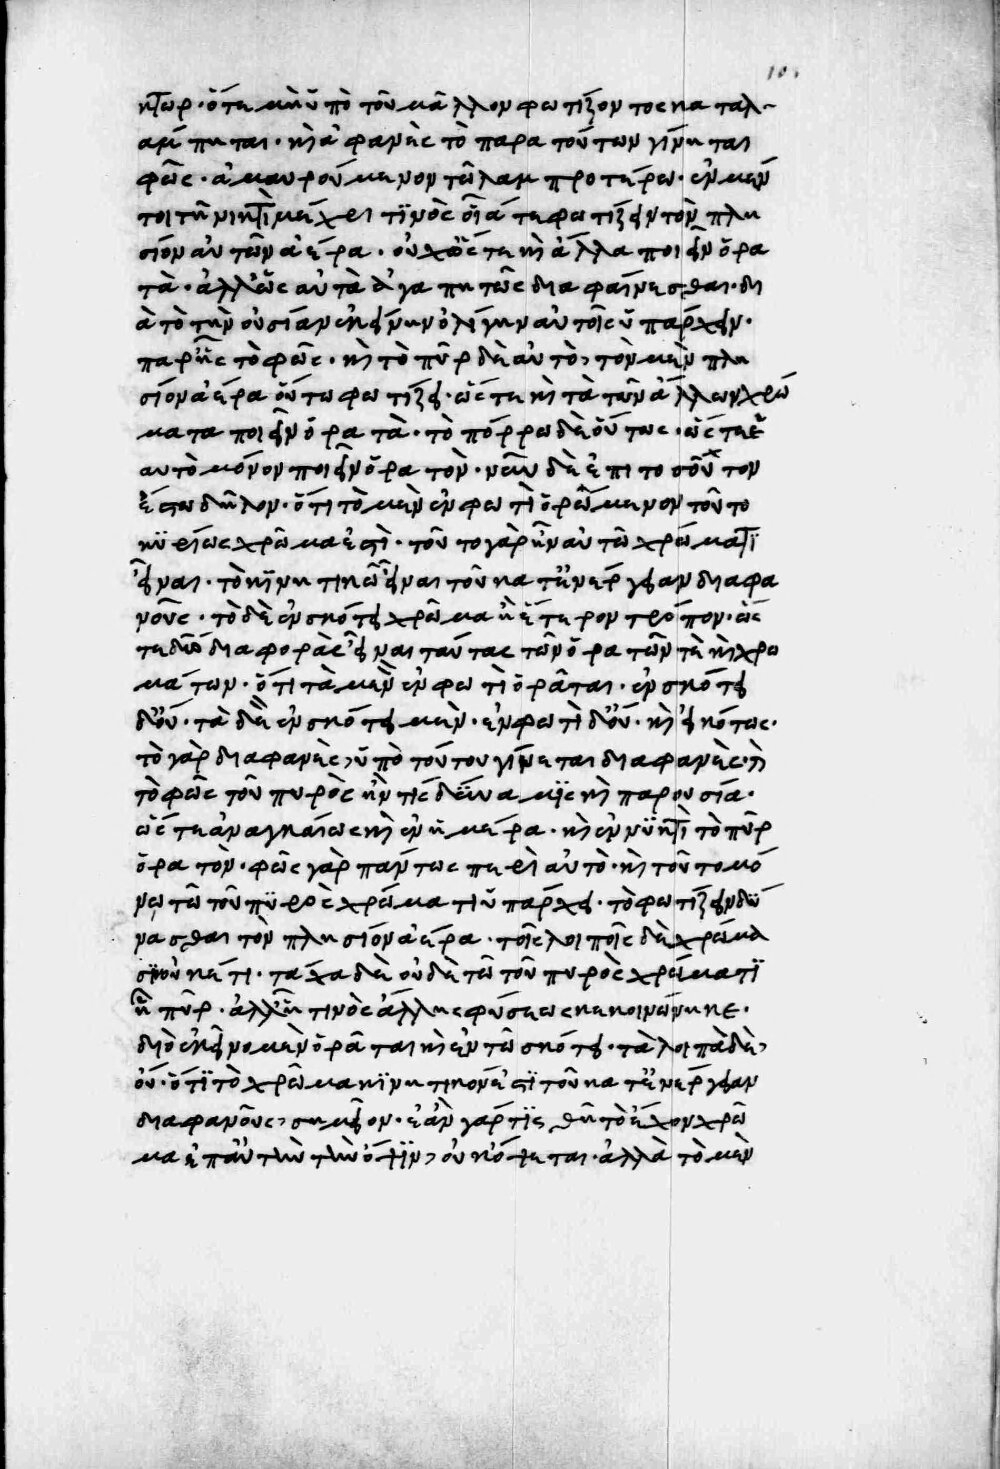 νύκτωρ· ὅτε μὴ ὑπὸ τοῦ μᾶλλον φωτίζοντος καταλ-
άμπηται· καὶ ἀφανὲς τὸ παρὰ τούτων γίνηται
φῶς· ἀμαυρούμενον τῶ λαμπροτέρω· ἐν μέν
τοι τῆ νυκτὶ μέχρι τινὸς οἷά τε φωτίζειν τὸν πλη
σίον αὐτῶν ἀέρα· οὐχ ὥστε καὶ ἄλλα ποιεῖν ὁρα
τά· ἀλλ' ὡς αὐτὰ ἀγαπητῶς διαφαίνεσθαι· δι
ὰ τὸ τὴν οὐσίαν ἐκείνην ὀλίγην αὐτοῖς ὑπάρχειν·
παρ' ἧς τὸ φῶς· καὶ τὸ πῦρ δὲ αὐτὸ, τὸν μὲν πλη
σίον ἀέρα οὕτω φωτίζει· ὥστε καὶ τὰ τῶν ἄλλων χρώ
ματα ποιεῖν ὁρατά· τὸ πόρρω δὲ οὕτως· ὥστε ἑ
αυτὸ μόνον ποιεῖν ὁρατόν· νῦν δὲ ἐπὶ τοσοῦτον
ἔστω δῆλον· ὅτι τὸ μὲν ἐν φωτὶ ὁρώμενον τοῦτο
κυρίως χρῶμα ἐστί· τοῦτο γὰρ ἦν αὐτῶ χρώματι
εἶναι· τὸ κινητικῶ εἶναι τοῦ κατ' ἐνέργειαν διαφα
νοῦς· τὸ δὲ ἐν σκότει χρῶμα ἢ ἕτερον τρόπον· ὥσ
τε δύο διαφορὰς εἶναι ταύτας τῶν ὁρατῶν τὲ καὶ χρω
μάτων· ὅτι τὰ μὲν ἐν φωτὶ ὁρᾶται· ἐν σκότει
δ' οὔ· τὰ δὲ ἐν σκότει μέν· ἐν φωτὶ δ' οὔ· καὶ εἰκότως·
τὸ γὰρ διαφανὲς, ὑπὸ τούτου γίνεται διαφανές·
τὸ φῶς τοῦ πυρὸς ἤν τις δύναμις καὶ παρουσία·
ὥστε ἀναγκαίως καὶ ἐν ἡμέρα· καὶ ἐν νυκτὶ τὸ πῦρ
ὁρατόν· φῶς γὰρ πάντως περὶ αὐτὸ· καὶ τοῦτο μό
νω τῶ τοῦ πυρὸς χρώματι ὑπάρχει· τὸ φωτίζειν δύ
νασθαι τὸν πλησίον ἀέρα· τοῖς λοιποῖς δὲ χρώμα
σιν οὐκέτι· τάχα δὲ οὐδὲ τῶ τοῦ πυρὸς χρώματι
ἧ πῦρ· ἀλλ' ἧ τινὸς ἄλλης φύσεως κεκοινώνηκε·
διὸ ἐκεῖνο μὲν ὁρᾶται καὶ ἐν τῶ σκότει· τὰ λοιπὰ δὲ,
οὔ· ὅτι τὸ χρῶμα κινητικόν ἐστι τοῦ κατ' ἐνέργειαν
διαφανοῦς, σημεῖον· ἐὰν γάρ τις θῆ τὸ ἔχον χρῶ
μα ἐπ' αὐτὴν τὴν ὄψιν, οὐκ ὄψεται· ἀλλὰ τὸ μὲν